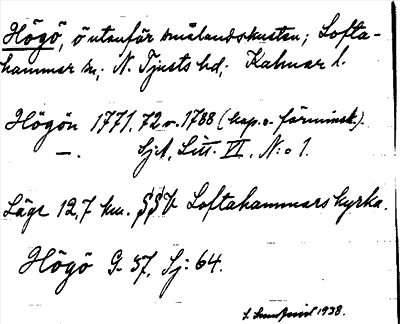 Högö, ö utanför smålandskusten; Lofta-
hammar sn; N. Tjusts hd; Kalmar l.
Högön 1771, 72 o. 1788 (kap. o. förminsk.).
—. Sjk, Litt. VI, N:o 1.
Läge 12,7 km. Loftahammars kyrka.
Högö G. 37, Sj: 64.
1938.